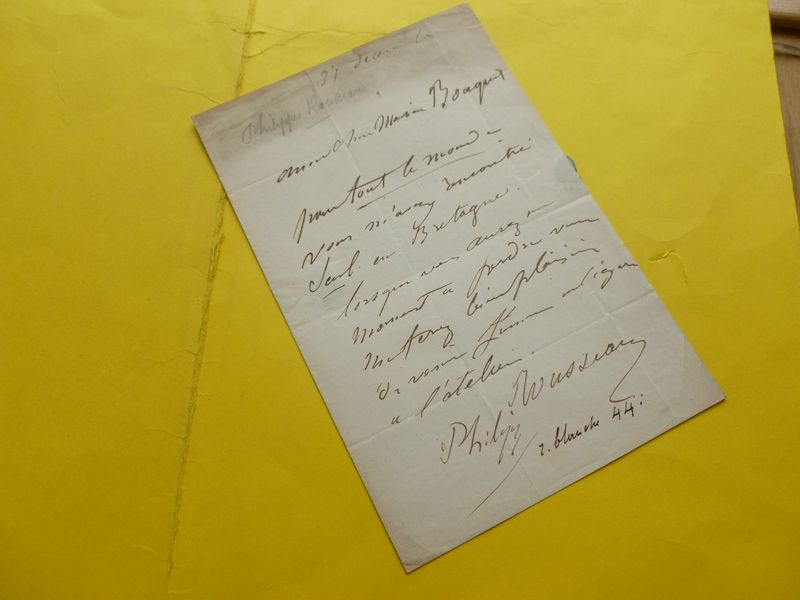 31 Decem
Philippe Rousseau
mon cher Monsieur Bouquet
pour tout le monde
vous m'avez rencontré
seul en Bretagne.
lorsque vous aurez un
moment a perdre vous
me ferez bien plaisir
de venir fumer un cigare
a l'atelier.
Philippe Rousseau
r. blanche 44.